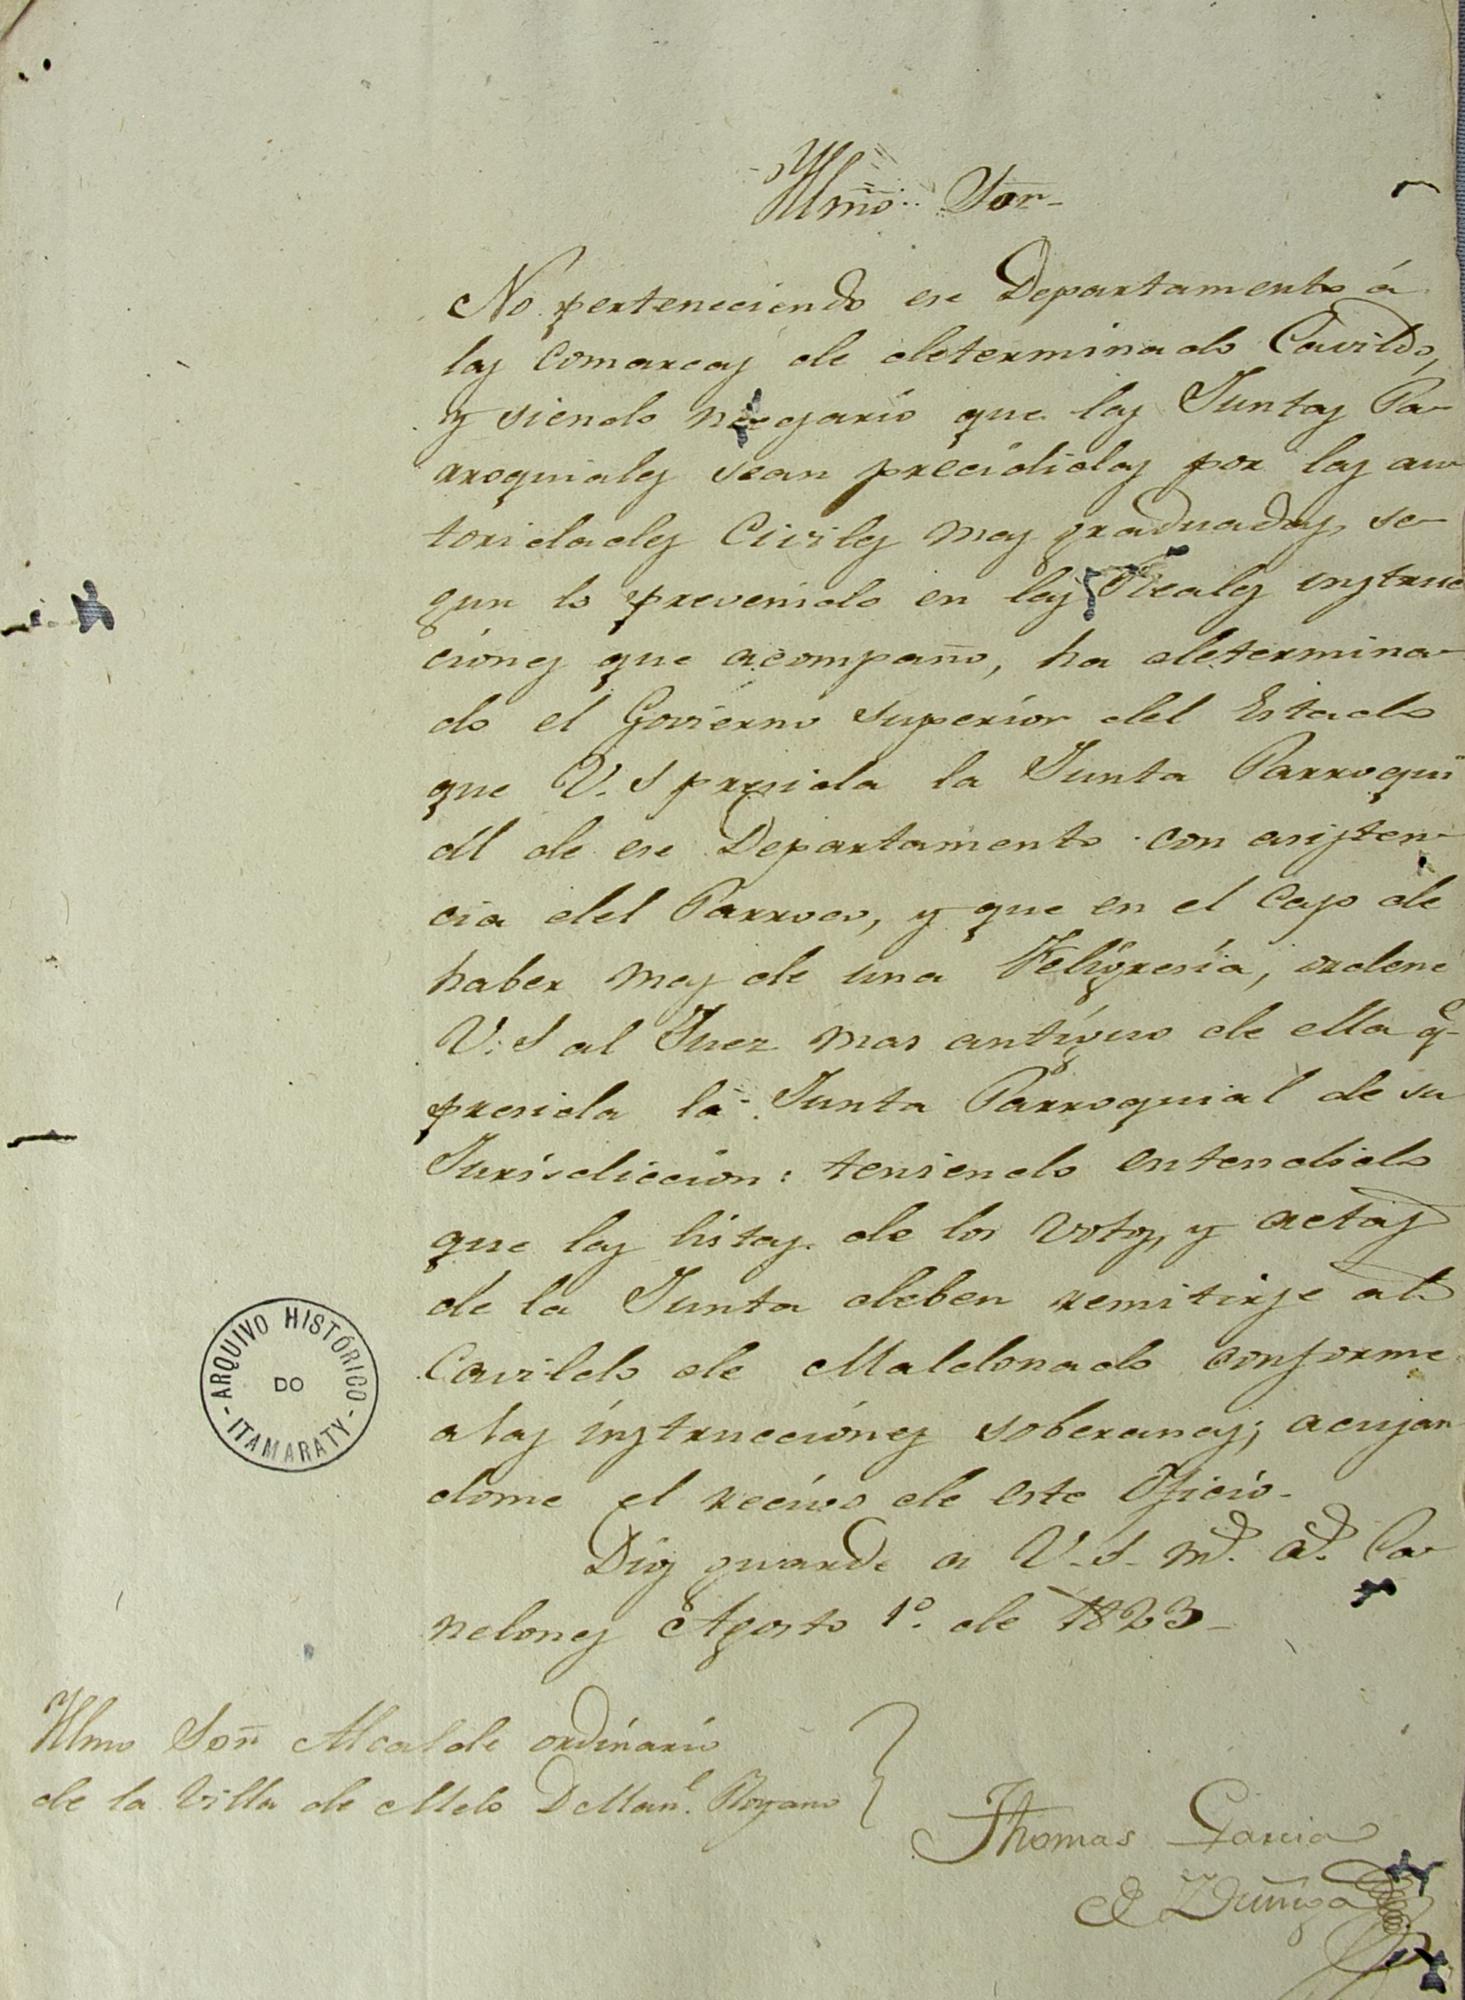 Yllmo. Sor-
No perteneciendo ese Departamento á
las comarcas de determinado Cavildo,
y siendo nesesario que las Juntas Pa-
rroquiales sean precididas por las au-
toridades Civiles mas graduadas, se-
gun lo prevenido en las Reales instruc
ciones que acompaño, ha determina-
do el Govierno superior del Estado
que V. S presida la Junta Parroqui
ál de ese Departamento con asisten-
cia del Parroco, y que en el caso de
haber mas de una Feligresia, ordene
V. S al Juez mas antiguo de ella qe
presida la Junta Parroquial de su
Jurisdiccion: teniendo entendido
que las listas de los votos, y actas
de la Junta deben remitirse al
Cavildo de Maldonado conforme
a las instrucciones soberanas; acusan
dome el recivo de este Oficio-
Dios guarde a V. S. ms. as. Ca-
nelones Agosto 1º. de 1823-
Yllmo Sor Alcalde ordinario
de la Villa de Melo D Manl.
Thomas Garcia
de Zuñiga
ARQUIVO HISTÓRICO
DO
- ITAMARATY -